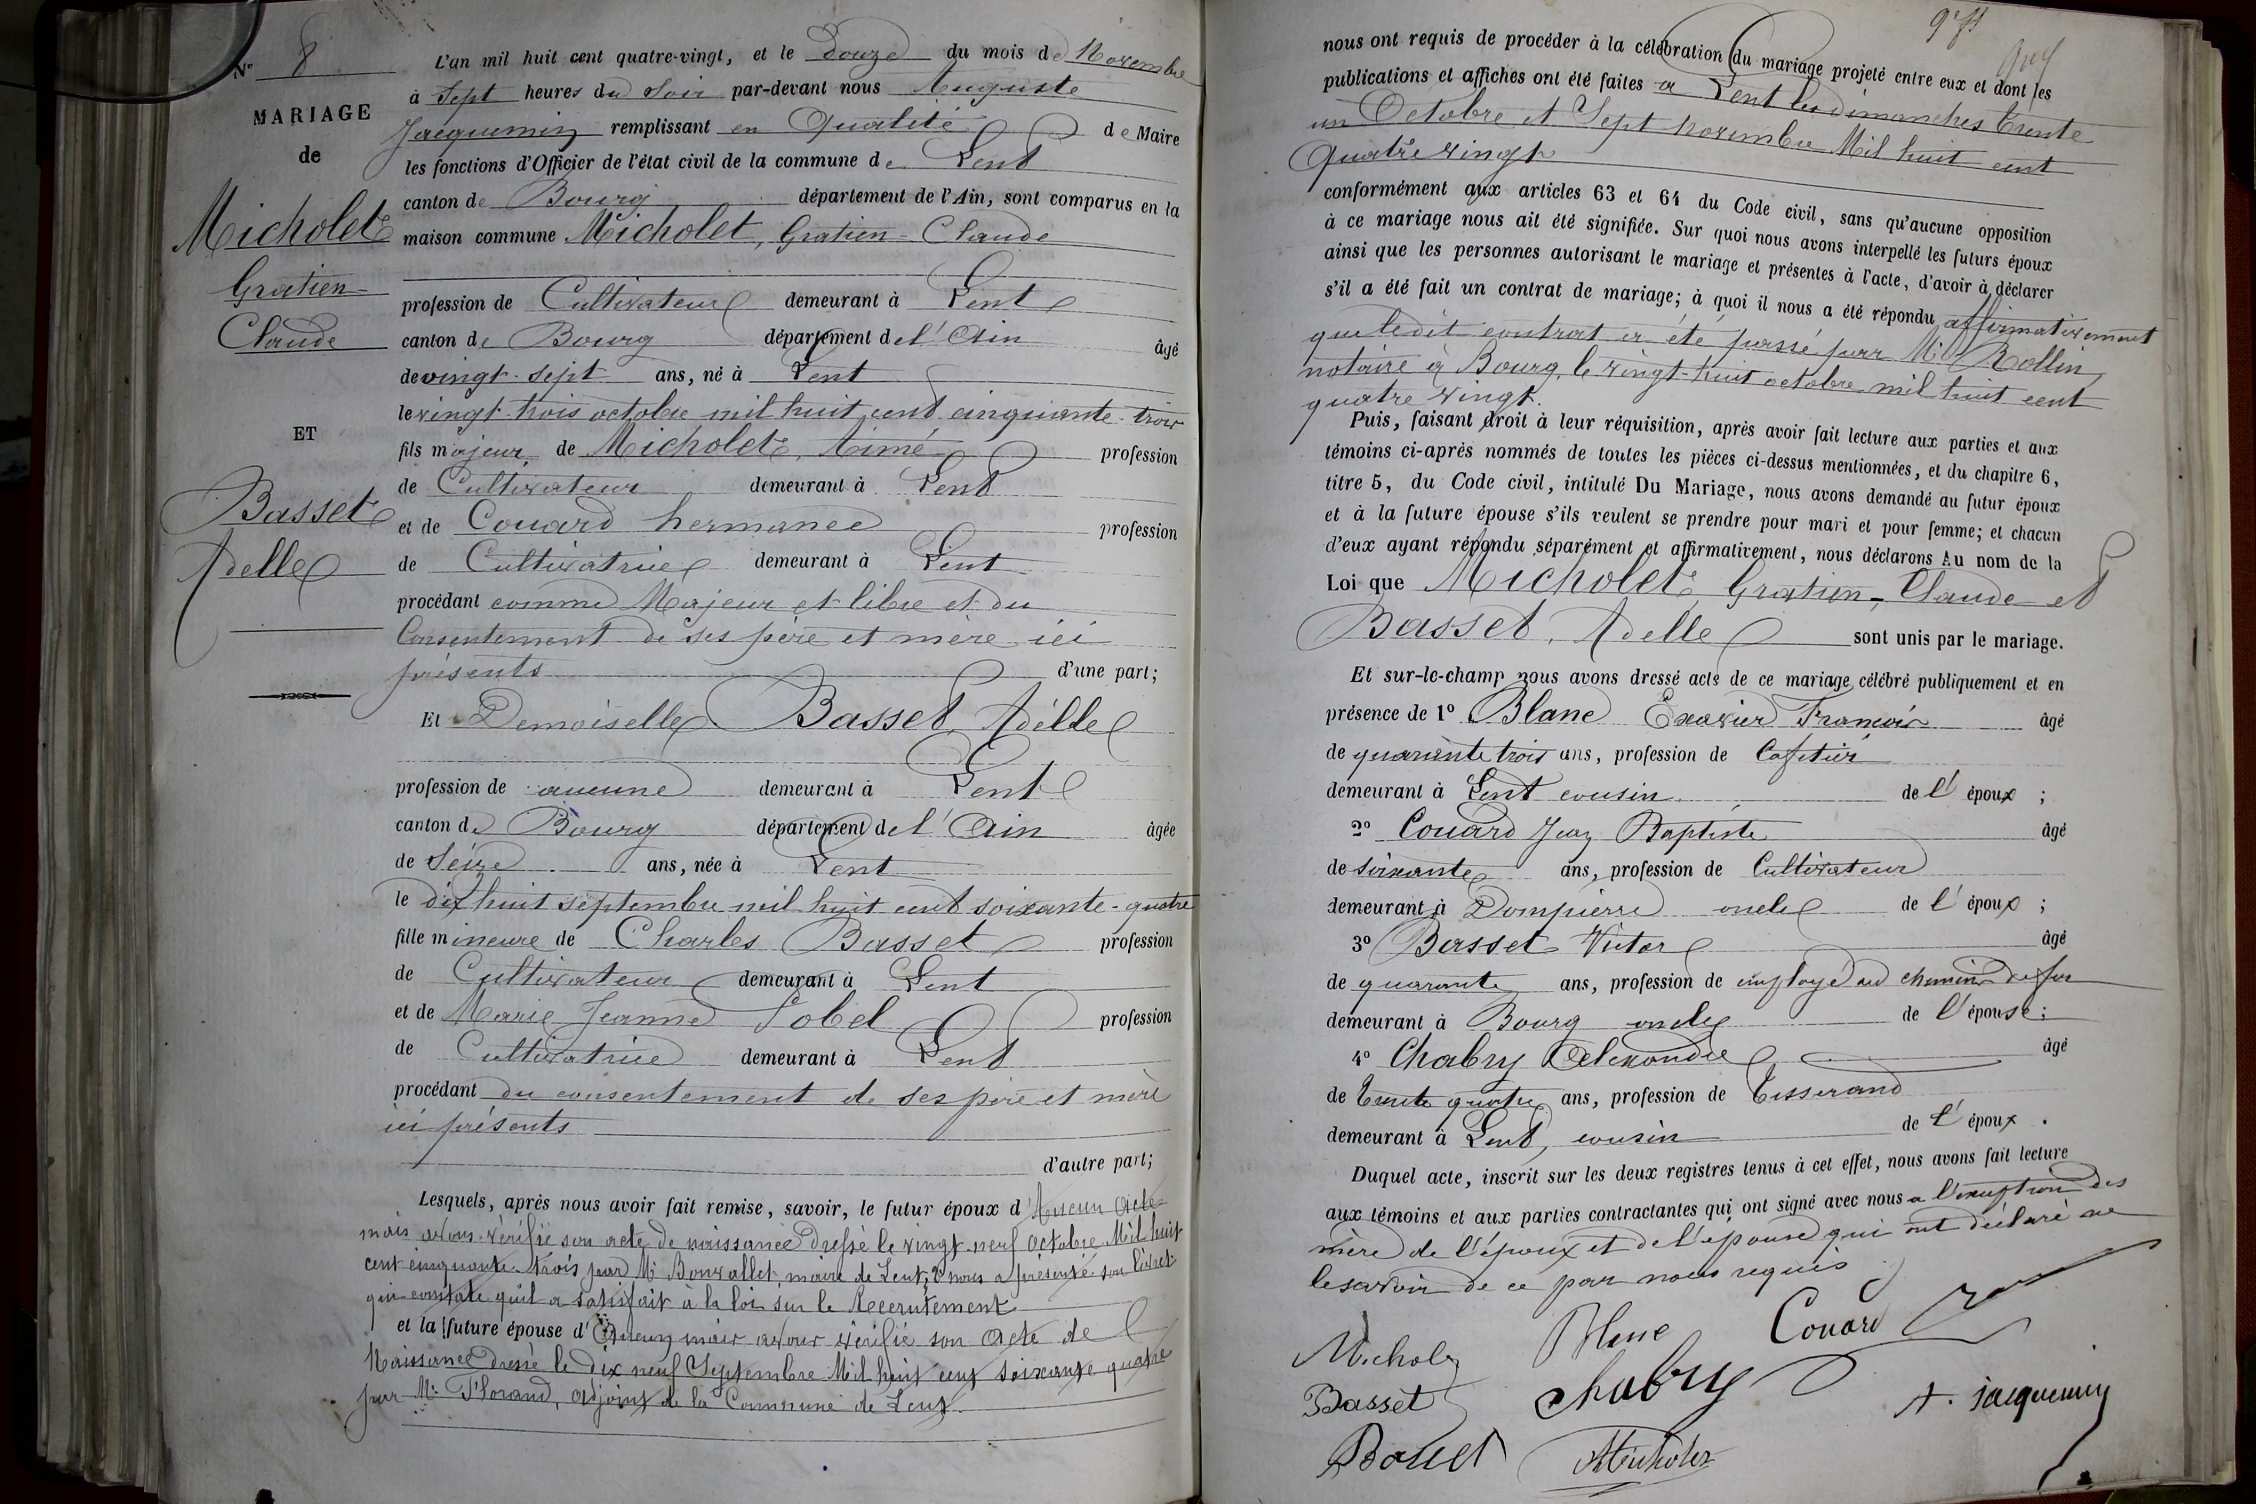 N° 8
MARIAGE
de
Micholet
Gratien
Claude
ET
Basset
Adelle
L'an mil huit cent quatre-vingt, et le Douze du mois de Novembre
à Sept heures du Soir par-devant nous Auguste
Jacquemin remplissant en Qualité de Maire
les fonctions d'Officier de l'état civil de la commune de Lent
canton de Bourg département de l'Ain, sont comparus en la
maison commune Micholet, Gratien Claude
profession de Cultivateur demeurant à Lent
canton de Bourg département de l'Ain âgé
de vingt-sept ans, né à Lent
le vingt trois octobre mil huit cent cinquante-trois
fils majeur de Micholet, Aimé profession
de Cultivateur demeurant à Lent
et de Couard hermance profession
de Cultivatrice demeurant à Lent
procédant comme Majeur et libre et du
Consentement de ses père et mère ici
présents d'une part;
Et Demoiselle Basset Adèlle
profession de aucune demeurant à Lent
canton de Bourg département de l'Ain âgée
de Seize ans, née à Lent
le dix huit septembre mil huit cent soixante-quatre
fille mineure de Charles Basset profession
de Cultivateur demeurant à Lent
et de Marie Jeanne Sobel profession
de Cultivatrice demeurant à Lent
procédant du consentement de ses père et mère
ici présents
d'autre part;
Lesquels, après nous avoir fait remise, savoir, le futur époux d'Aucun acte
mais avons vérifié son acte de naissance Dressé le vingt-neuf Octobre Mil huit
cent cinquante-trois par Mr Bonvallet, maire de Lent, & nous a présenté son livret
qui constate qu'il a satisfait à la loi sur le Recerutement
et la future épouse d'Aucun mais avons vérifié son acte de
Naissance dressé le dix neuf Septembre Mil huit cent soixante quatre
par Mr Florand, adjoint de la Commune de Lent.
nous ont requis de procéder à la célébration du mariage projeté entre eux et dont les
publications et affiches ont été faites a Lent les dimanches trente
un Octobre et Sept novembre Mil huit cent
Quatre vingt
conformément aux articles 63 et 64 du Code civil, sans qu'aucune opposition
à ce mariage nous ait été signifiée. Sur quoi nous avons interpellé les futurs époux
ainsi que les personnes autorisant le mariage et présentes à l'acte, d'avoir à déclarer
s'il a été fait un contrat de mariage; à quoi il nous a été répondu affirmativement
que ledit contrat a été passé par Me Rollin,
notaire à Bourg, le vingt-huit octobre mil huit cent
quatre vingt.
Puis, faisant droit à leur réquisition, après avoir fait lecture aux parties et aux
témoins ci-après nommés de toutes les pièces ci-dessus mentionnées, et du chapitre 6,
titre 5, du Code civil, intitulé Du Mariage, nous avons demandé au futur époux
et à la future épouse s'ils veulent se prendre pour mari et pour femme; et chacun
d'eux ayant répondu séparément et affirmativement, nous déclarons Au nom de la
Loi que Micholet, Gratien-Claude et
Basset, Adelle sont unis par le mariage.
Et sur-le-champ nous avons dressé acte de ce mariage célébré publiquement et en
présence de 1° Blanc Exavier François âgé
de quarante trois ans, profession de Cafetier
demeurant à Lent cousin de l'époux ;
2° Couard Jean Baptiste âgé
de soixante ans, profession de Cultivateur
demeurant à Dompierre oncle de l'époux ;
3° Basset Victor âgé
de quarante ans, profession de employé au chemin de fer
demeurant à Bourg oncle de l'épouse ;
4° Chabry Alexandre âgé
de trente quatre ans, profession de Tisserand
demeurant à Lent, cousin de l'époux .
Duquel acte, inscrit sur les deux registres tenus à cet effet, nous avons fait lecture
aux témoins et aux parties contractantes qui ont signé avec nous a l'exception des
mère de l'époux et de l'épouse qui ont déclaré ne
le savoir de ce par nous requis
Micholet Blanc Couard
Basset Chabry A. Jacquemin
Basset Micholet